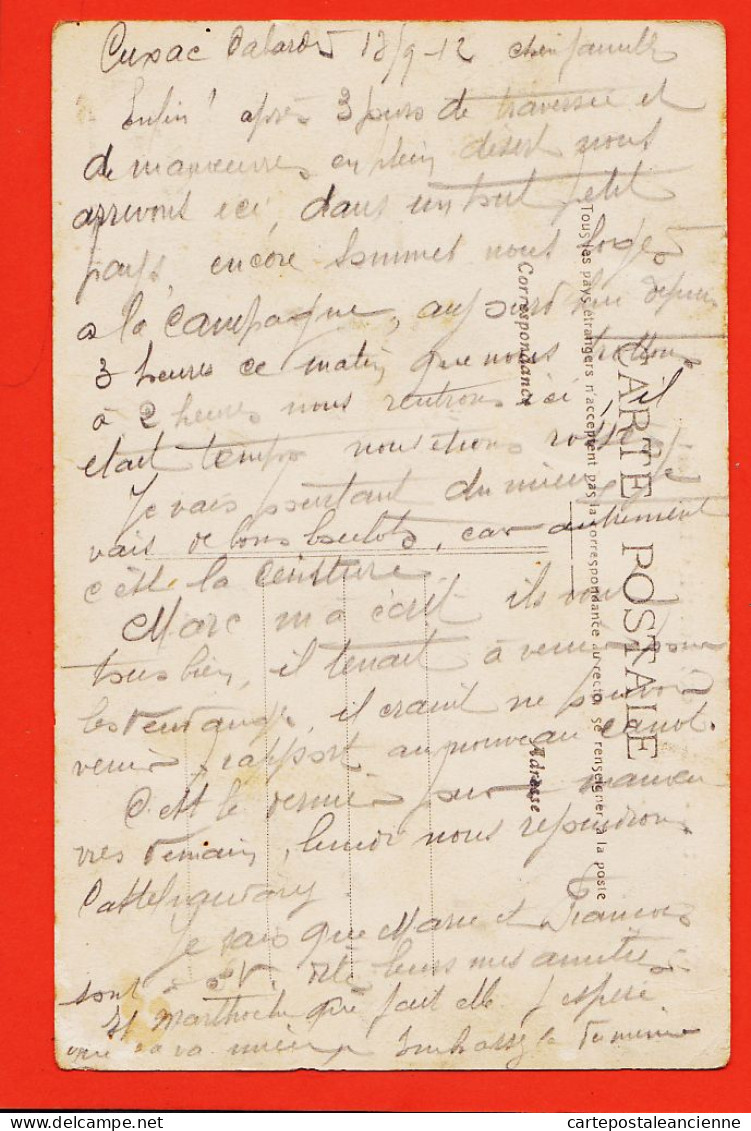 Cuxac Cabardès 18/9-12 chère famille
Enfin! après 3 jours de traversée et
de manoeuvres en plein désert nous
arrivons ici, dans un tout petit
pays encore sommes nous logés
a la campagne, aujourd'hui depuis
3 heures ce matin que nous trottons
à 2 heures nous rentrons ici, il
etait temps nous etions
Je vais pourtant du mieux je
vais de bons boulots, car autrement
c'est la ceinture
Marc m'a écrit ils vont
tous bien, il tenait à venir pour
les vendanges, il craint ne pouvoir
venir rapport au nouveau canot.
C'est le dernier jour manoeu
vres demain, lundi nous rejoindrons
Castelnaudary
Je sais que Marie et François
sont a leurs mes amitiés
Et Marthoche que fait elle j'espère
que ça va mieux Embrassez la de même
CARTE POSTALE
Tous les pays étrangers n'acceptent pas la correspondance au recto, se renseigner à la poste
Correspondance
Adresse
delcampe.net
cartepostaleancienne